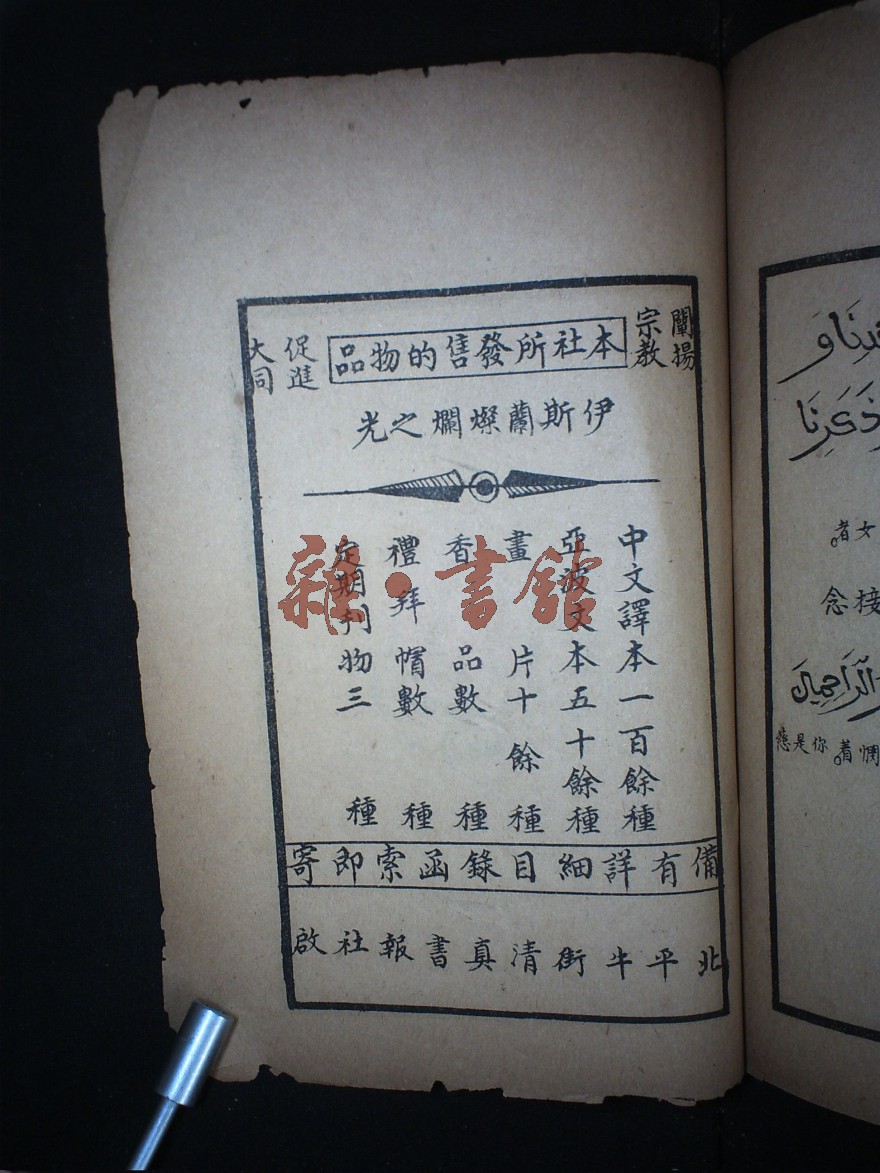 闡揚
宗教
本社所發售的物品
促進
大同
伊斯蘭燦爛之光
中文譯本一百餘種
亞波文本五十餘種
畫片十餘種
香品數種
禮拜帽數種
定期刊物三種
備有詳細目錄函索即寄
北平牛街清真書報社啟
雜·書館
女者
接念
你是慈
憫着